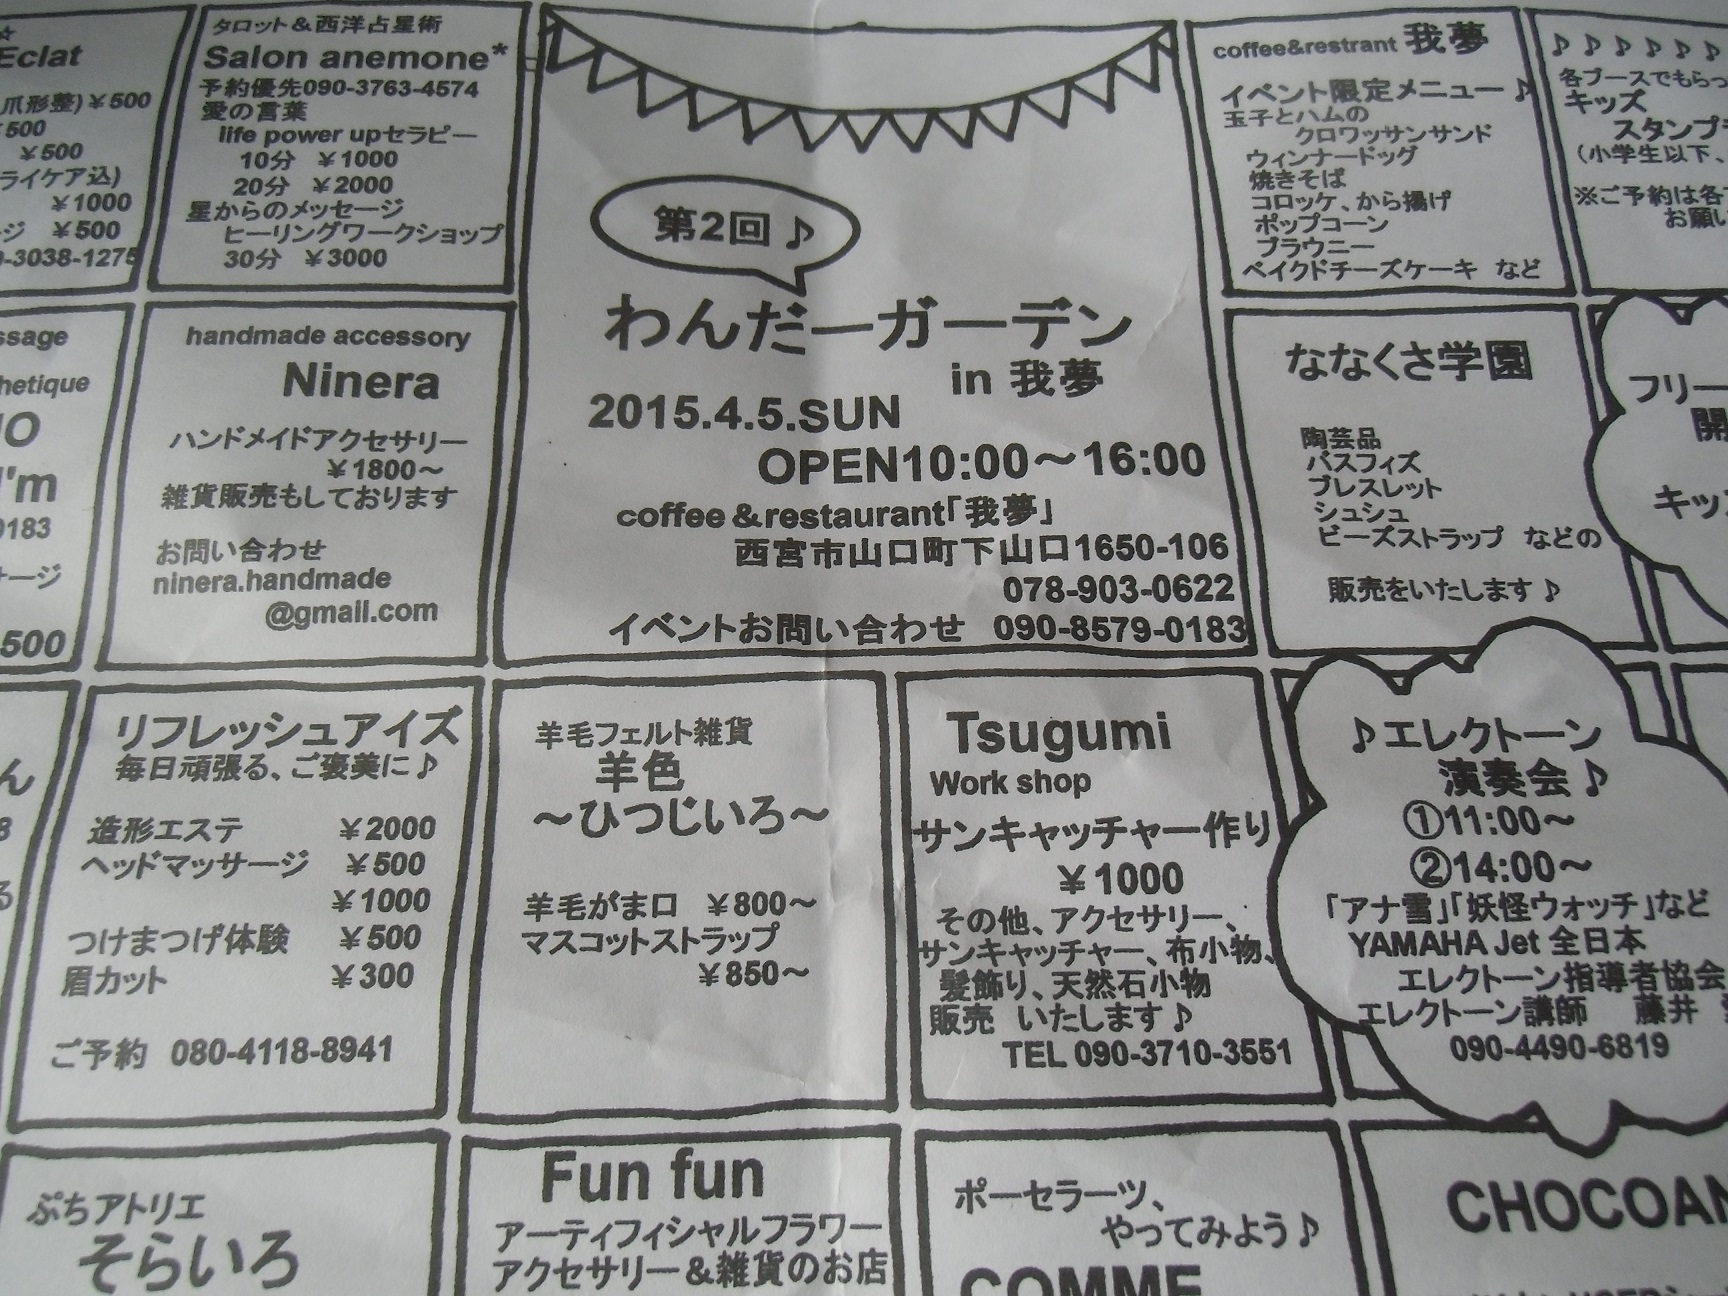 Eclat
爪形整)￥500
￥500
￥500
ライケア込)
￥1000
ジ ￥500
-3038-1275
タロット＆西洋占星術
Salon anemone*
予約優先090-3763-4574
愛の言葉
life power upセラピー
10分 ￥1000
20分 ￥2000
星からのメッセージ
ヒーリングワークショップ
30分 ￥3000
第2回♪
わんだーガーデン
in 我夢
2015.4.5.SUN
OPEN10:00～16:00
coffee＆restaurant「我夢」
西宮市山口町下山口1650-106
078-903-0622
イベントお問い合わせ 090-8579-0183
coffee&restrant 我夢
イベント限定メニュー♪
玉子とハムの
クロワッサンサンド
ウィンナードッグ
焼きそば
コロッケ、から揚げ
ポップコーン
ブラウニー
ベイクドチーズケーキ など
♪♪♪♪♪♪
各ブースでもらっ
キッズ
スタンプラ
(小学生以下、
※ご予約は各
お願い
ssage
hetique
I'm
0183
ージ
500
handmade accessory
Ninera
ハンドメイドアクセサリー
￥1800～
雑貨販売もしております
お問い合わせ
ninera.handmade
@gmail.com
ななくさ学園
陶芸品
バスフィズ
ブレスレット
シュシュ
ビーズストラップ などの
販売をいたします♪
フリー
開
キッ
ん
リフレッシュアイズ
毎日頑張る、ご褒美に♪
造形エステ ￥2000
ヘッドマッサージ ￥500
￥1000
つけまつげ体験 ￥500
眉カット ￥300
ご予約 080-4118-8941
羊毛フェルト雑貨
羊色
～ひつじいろ～
羊毛がま口 ￥800～
マスコットストラップ
￥850～
Tsugumi
Work shop
サンキャッチャー作り
￥1000
その他、アクセサリー、
サンキャッチャー、布小物、
髪飾り、天然石小物
販売 いたします♪
TEL 090-3710-3551
♪エレクトーン
演奏会♪
①11:00～
②14:00～
「アナ雪」「妖怪ウォッチ」など
YAMAHA Jet 全日本
エレクトーン指導者協会
エレクトーン講師 藤井
090-4490-6819
ぷちアトリエ
そらいろ
Fun fun
アーティフィシャルフラワー
アクセサリー＆雑貨のお店
ポーセラーツ、
やってみよう♪
COMME
CHOCOAN